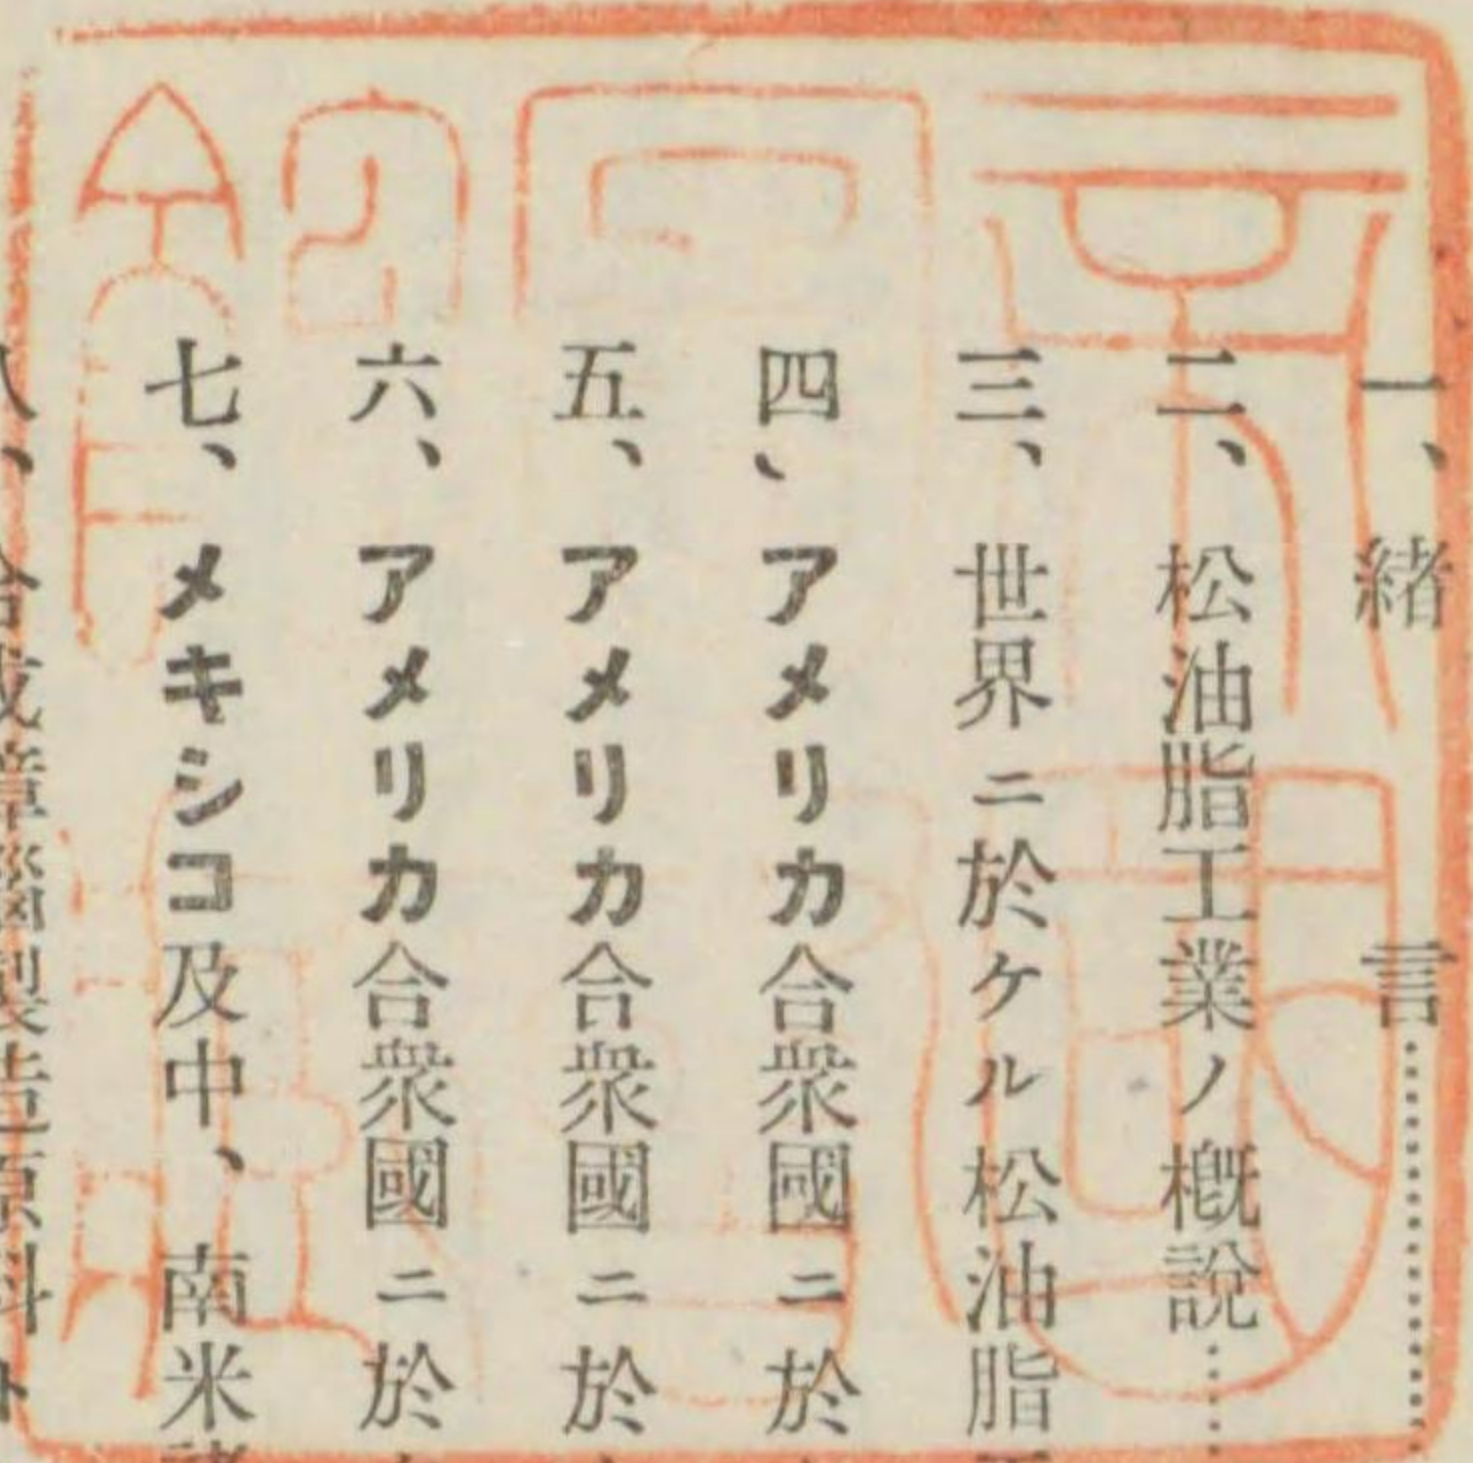 一、緒言
二、松油脂工業ノ概說
三、世界ニ於ケル松油脂
四、アメリカ合衆國ニ於
五、アメリカ合衆國ニ於
六、アメリカ合衆國ニ於
七、メキシコ及中、南米
八、合成樟腦製造原料